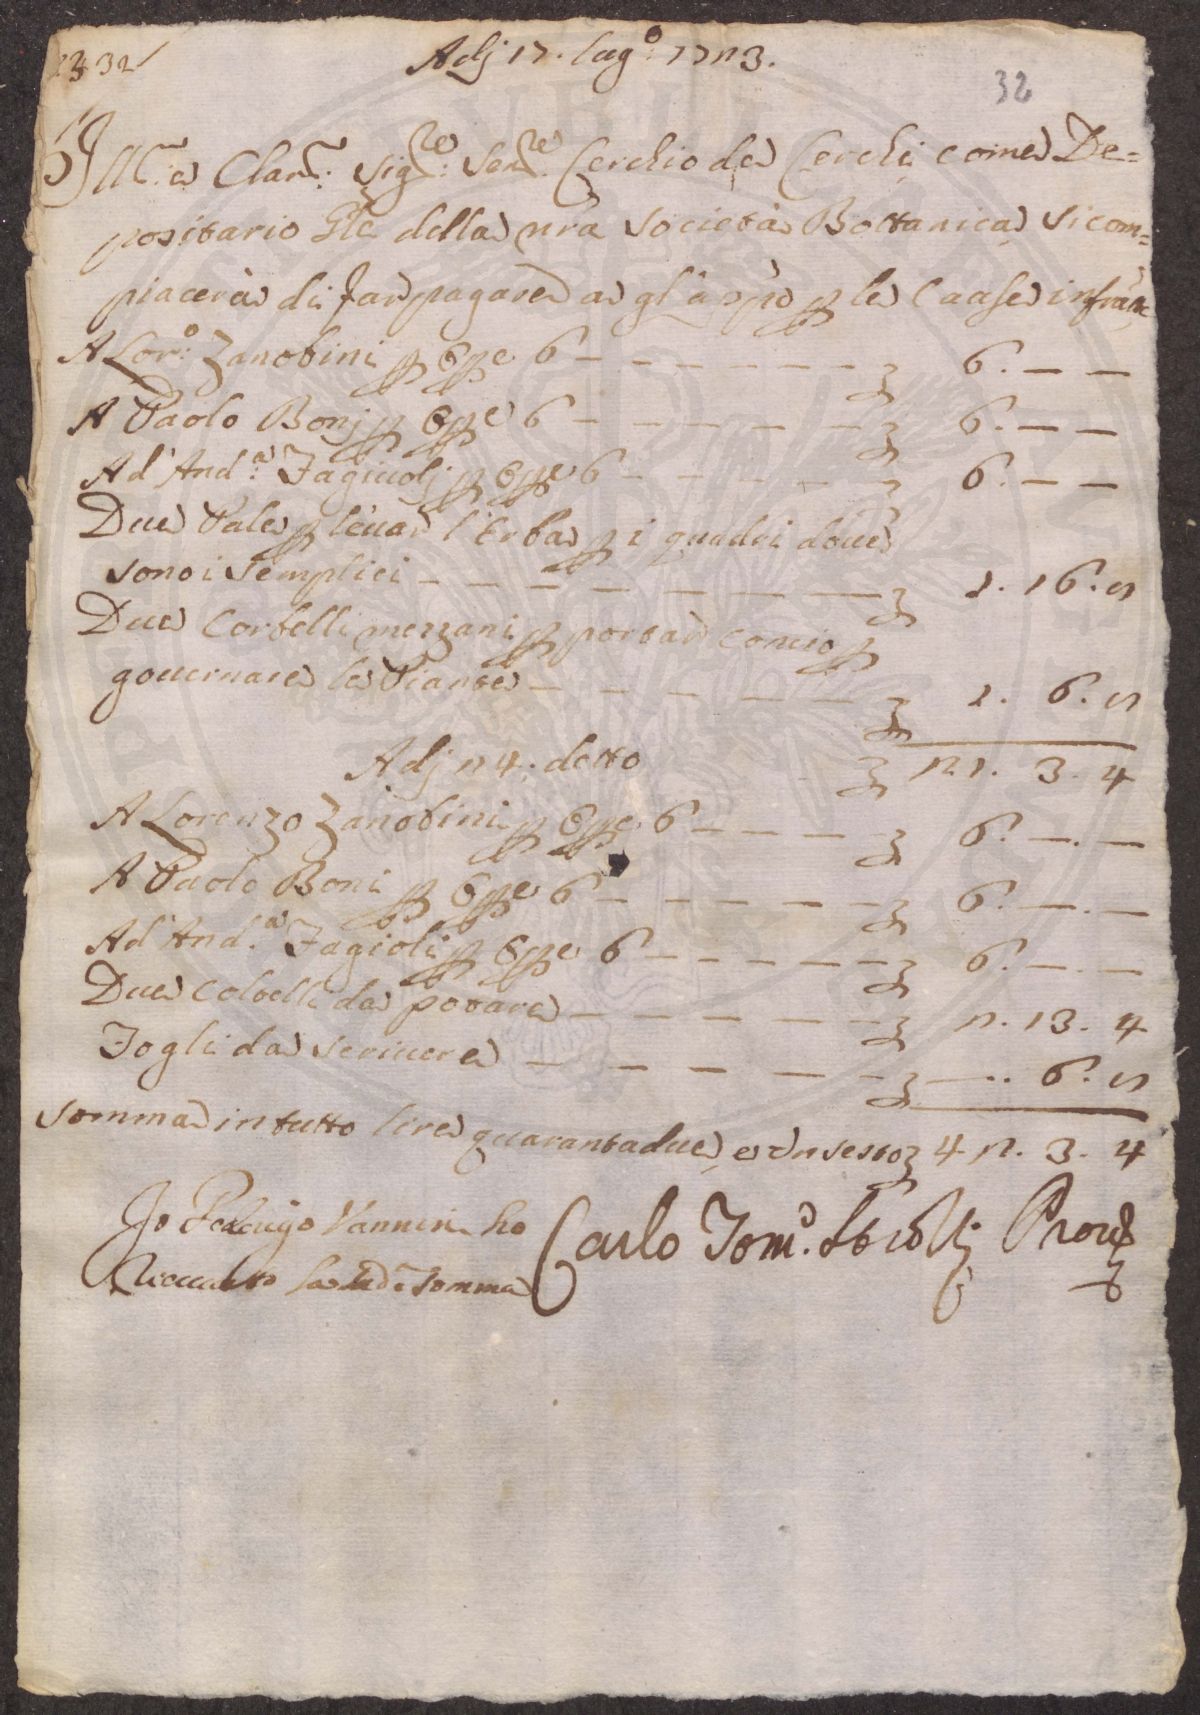 32
Adj 17. lug.o 1723.
32
Ill.mo e Clar.mo Sig.re Sen.re Cerchio de Cerchi come De=
positario Gle della nra Società Bottanica si com=
piacerà di far pagare a gl'appo p le Cause infratte
A Lor.o Zanobini p Oppe 6 - - - - - - - £ 6. — —
A Paolo Bonj p Oppe 6 - - - - - - £ 6. — —
Ad'And.a Fagiuolj p Oppe 6 - - - - - £ 6. — —
Due Pale p levar l'Erba p i quadri dove
sono i Semplici - - - - - - - £ 1. 16. 8
Due Corbelli mezzani p portar concio p
governare le Piante - - - - - - £ 1. 6. 8
Adj 24. detto £ 21. 3. 4
A Lorenzo Zanobini p Oppe 6 - - - - - £ 6. —. —
A Paolo Boni p Oppe 6 - - - - - - £ 6. —. —
Ad'And.a Fagioli p Oppe 6 - - - - - - £ 6. —. —
Due Coltelli da potare - - - - - - £ 2. 13. 4
Fogli da scrivere - - - - - - £ —. 6. 8
Somma in tutto lire quarantadue, e un sesto £ 42. 3. 4
Jo Federigo Vannini ho
Riceuuto la sud.a somma
Carlo Tom.o Prov.re